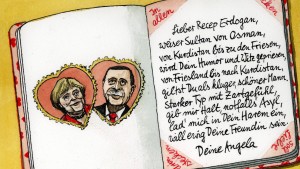 In allen
Ecken
Lieber Recep Erdogan,
weiser Sultan von Osman,
von Kurdistan bis zu den Friesen,
wird Dein Humor und Witz gepriesen,
von Friesland bis nach Kurdistan,
giltst Du als kluger, schöner Mann.
Starker Typ mit Zartgefühl,
gib mir Halt, notfalls Asyl,
lad' mich in Dein Harem ein,
will ewig Deine Freundin sein.
Deine Angela